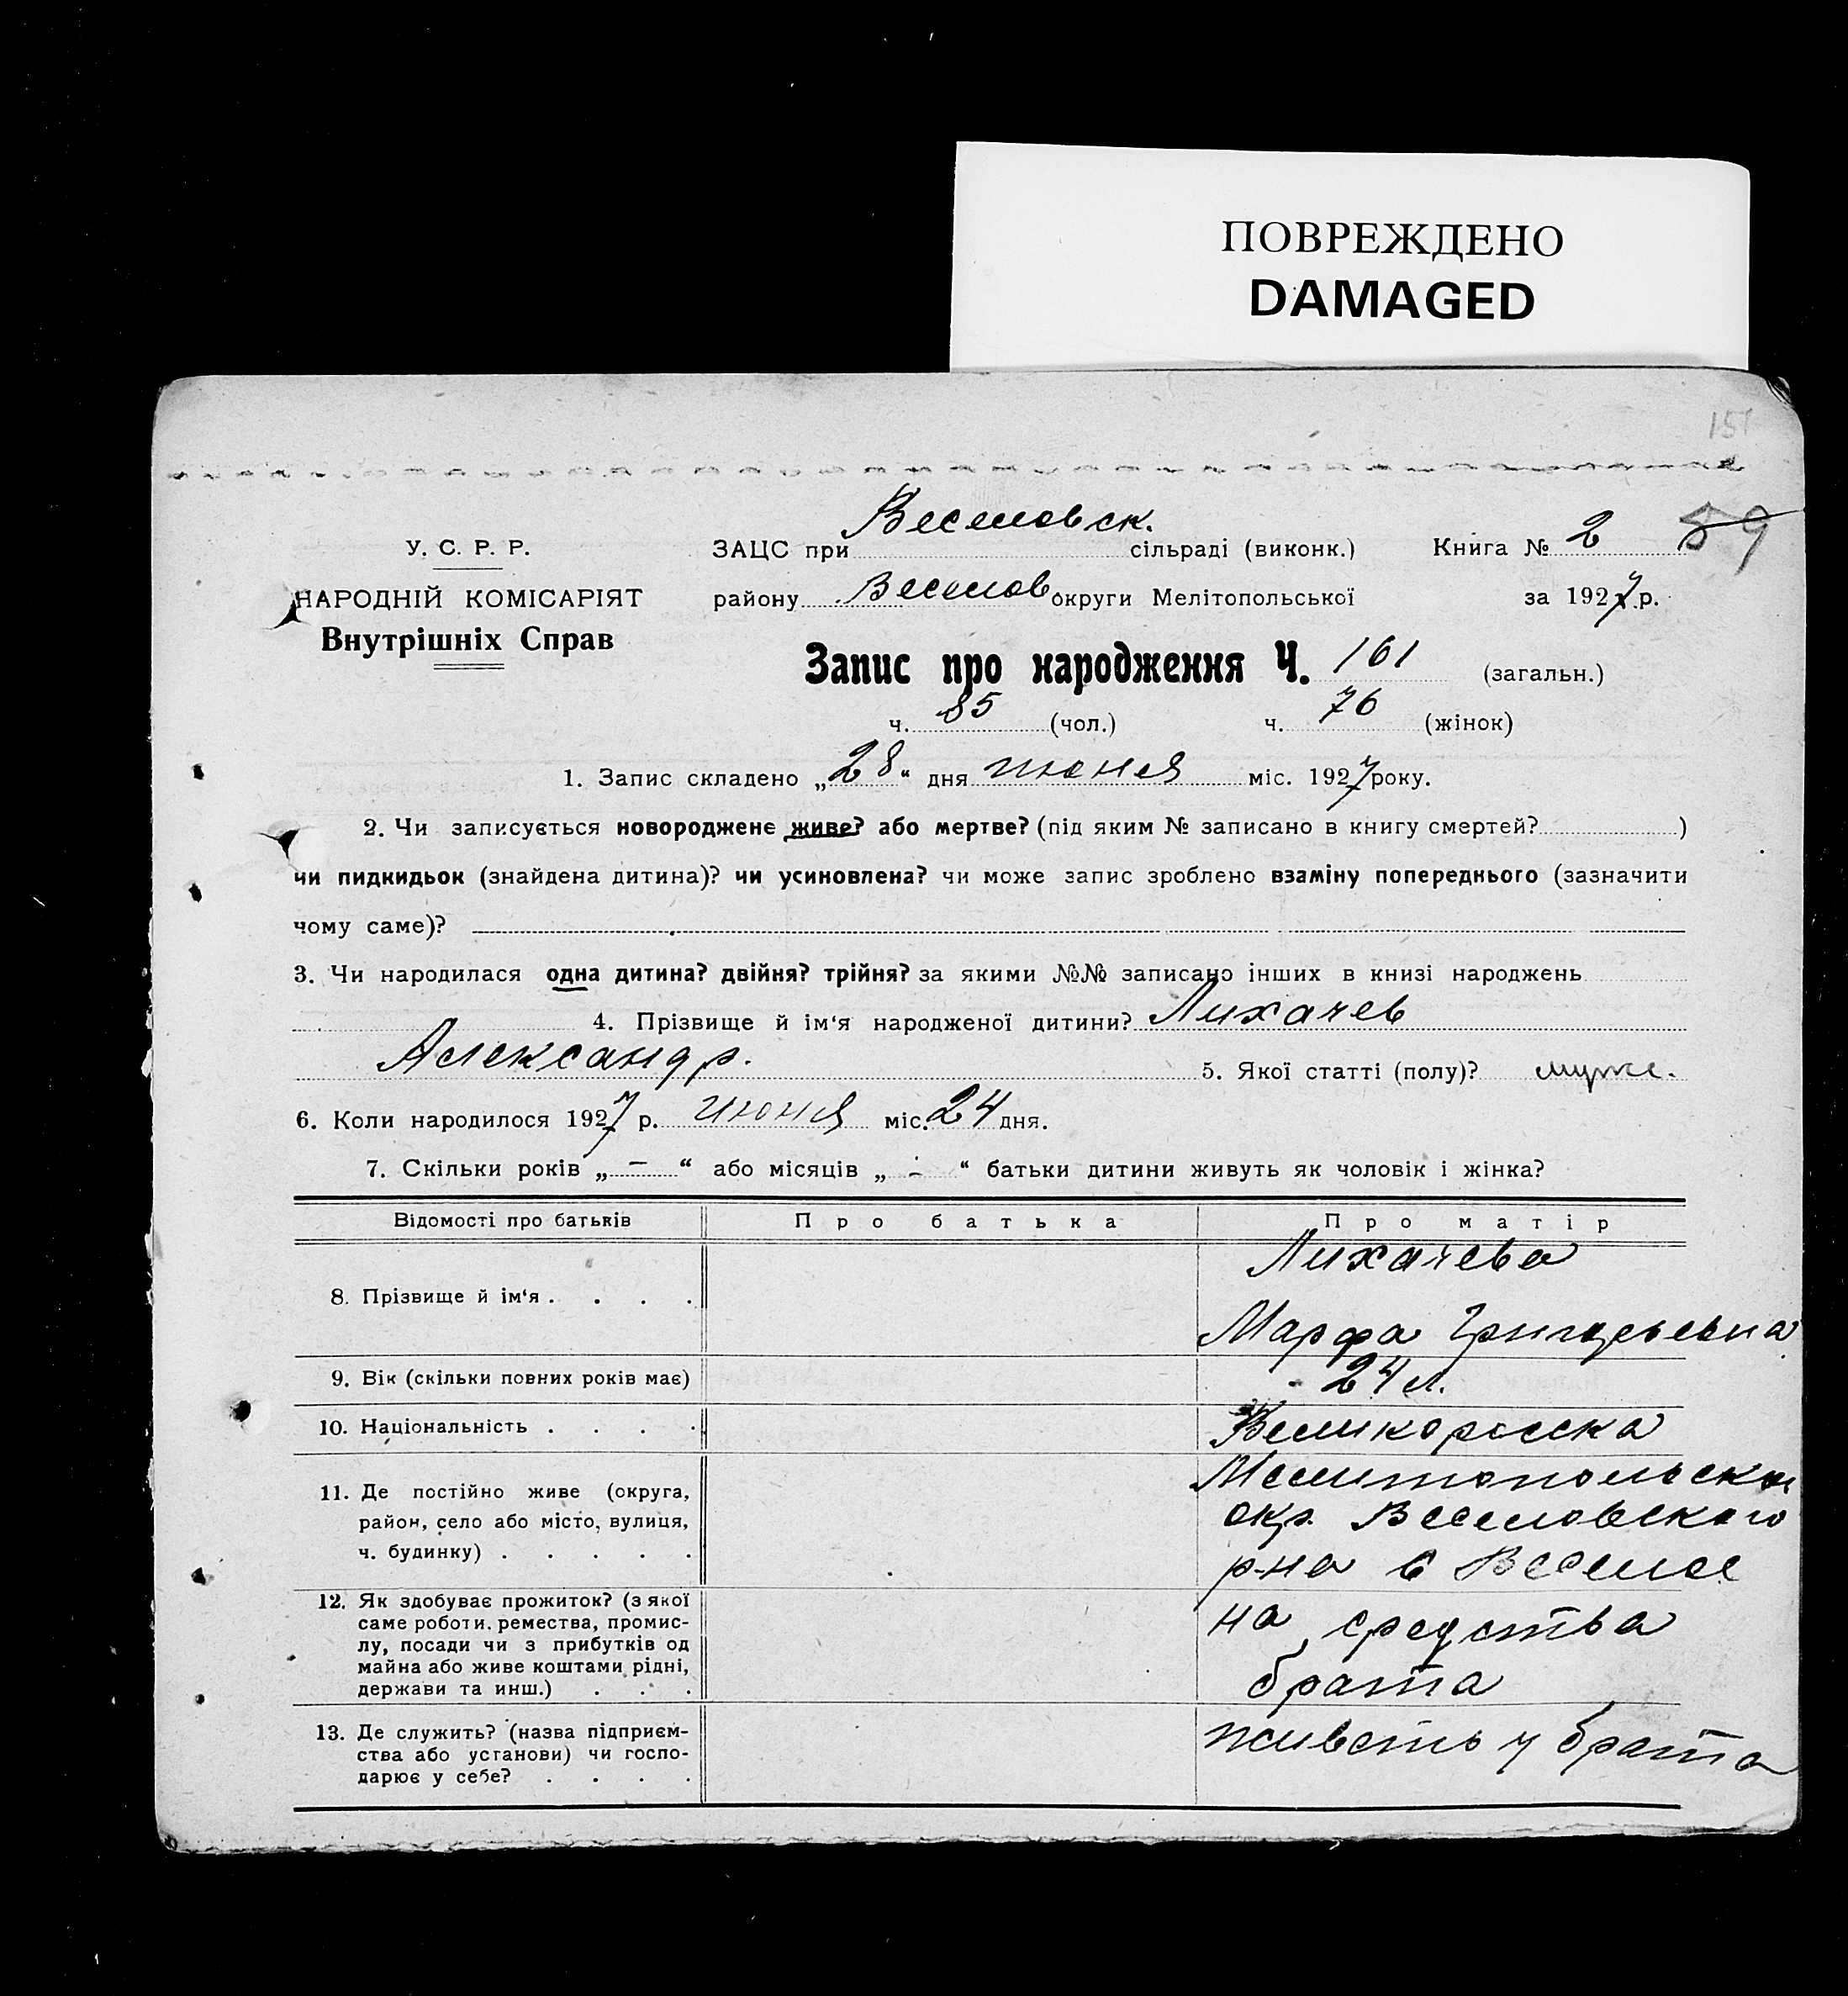 ПОВРЕЖДЕНО
DAMAGED
151
Веселовск.
У. С. Р. Р. ЗАЦС при сільраді (виконк.) Книга № 2 59
НАРОДНІЙ КОМІСАРІЯТ району Веселов. округи Мелітопольської за 1927 р.
Внутрішніх Справ
Запис про народження Ч. 161 (загальн.)
ч. 85 (чол.) ч. 76 (жінок)
1. Запис складено „28“ дня июня міс. 1927 року.
2. Чи записується новороджене живе? або мертве? (під яким № записано в книгу смертей? )
чи пидкидьок (знайдена дитина)? чи усиновлена? чи може запис зроблено взаміну попереднього (зазначити
чому саме)?
3. Чи народилася одна дитина? двійня? трійня? за якими №№ записано інших в книзі народжень
4. Прізвище й ім‘я народженої дитини? Лихачев
Александр. 5. Якої статті (полу)? мужс.
6. Коли народилося 1927 р. июня міс. 24 дня.
7. Скільки років „ – “ або місяців „ - “ батьки дитини живуть як чоловік і жінка?
Відомості про батьків Про батька Про матір
8. Прізвище й ім‘я . . . . Лихачева
Марфа Григорьевна
9. Вік (скільки повних років має) 24 л.
10. Національність . . . . Великоросска
11. Де постійно живе (округа, Мелитопольской
район, село або місто, вулиця, окр. Веселовского
ч. будинку) . . . . . р-на с Веселое
12. Як здобуває прожиток? (з якої
саме роботи, ремества, промис- на средства
лу, посади чи з прибутків од
майна або живе коштами рідні, брата
держави та инш.) . . .
13. Де служить? (назва підприєм- живеть у брата
ства або установи) чи госпо-
дарює у себе? . . . .